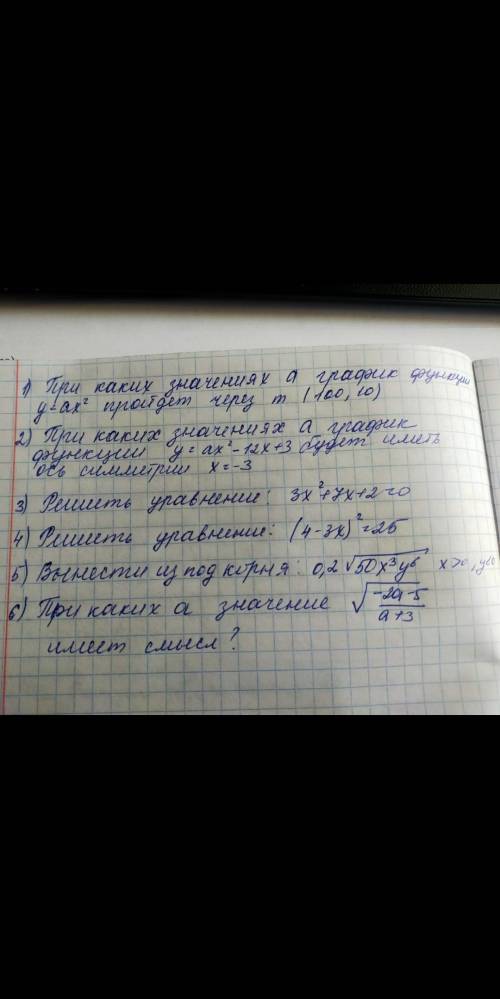 1) При каких значениях а график функции
y=ax² пройдет через т (100, 10)
2) При каких значениях а график
функции y=ax²-12x+3 будет иметь
ось симметрии x=-3
3) Решить уравнение: 3x²+7x+2=0
4) Решить уравнение: (4-3x)²=25
5) Вынести из под корня: 0,2√50x³y⁶ x>0,
6) При каких а значение √(-2a-5)/(a+3)
имеет смысл?